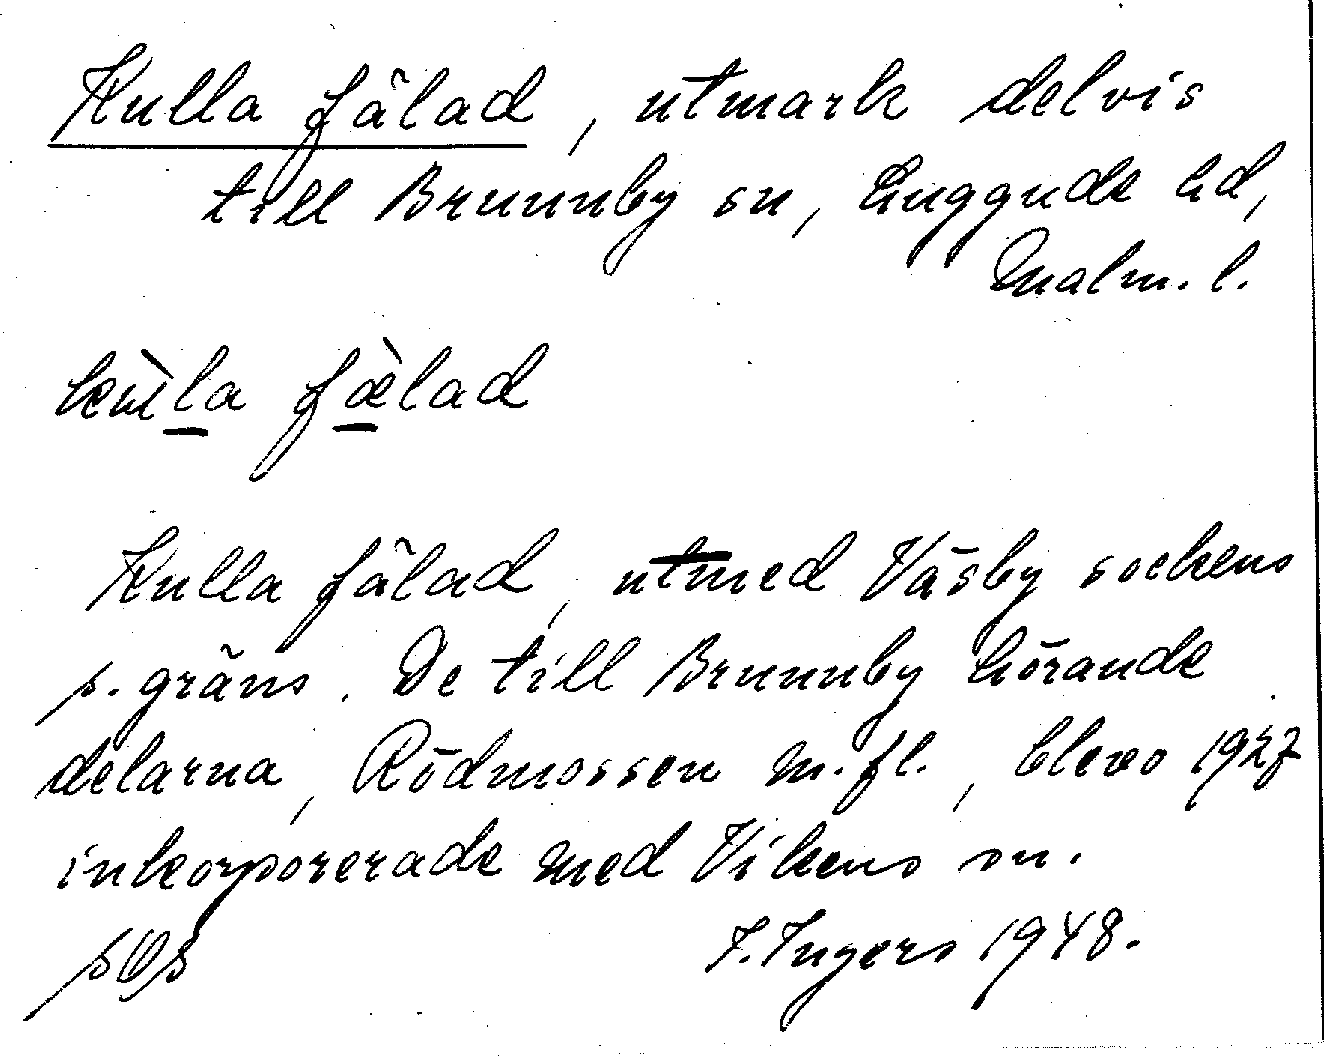 Kulla fälad, utmark delvis
till Brunnby sn, Luggude hd,
Malm. l.
fælad
Kulla fälad, utmed Väsby sockens
s. gräns. De till Brunnby hörande
delarna, Rödmossen m. fl., blevo 1927
inkorporerade med Vikens sn.
I. Ingers 1948.